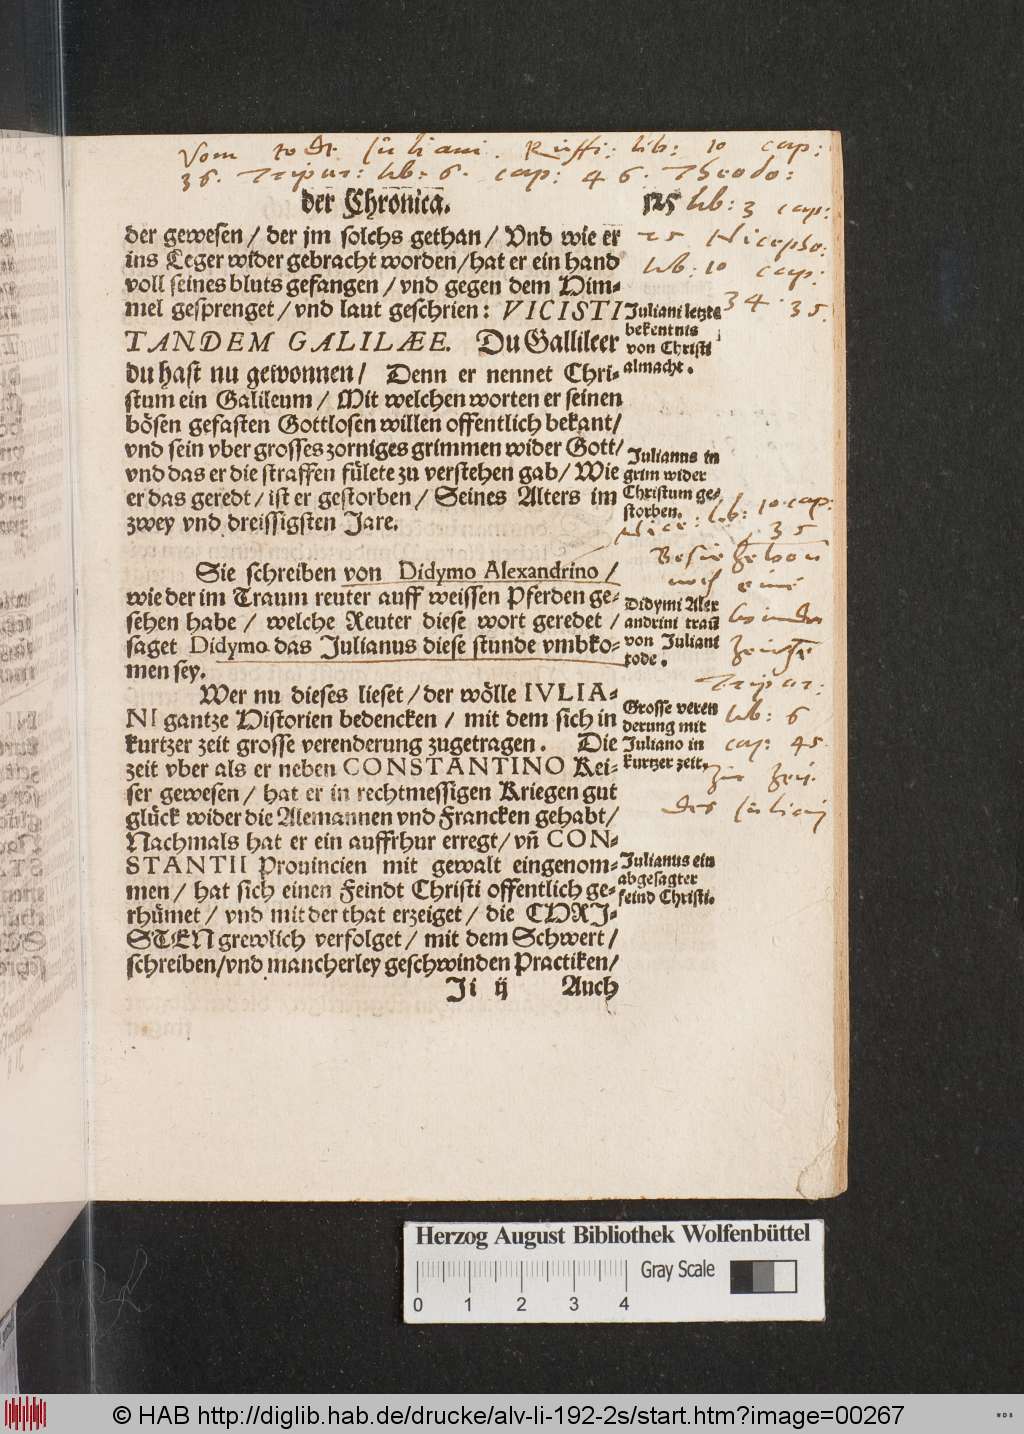 Vom todt Juliani. Ruffi: lib: 10 cap:
36. Tripar: lib: 6. cap: 46. Theodo:
der Chronica. 125 lib: 3 cap:
25 Nicepho:
lib: 10 cap:
34. 35.
der gewesen / der jm solchs gethan / Vnd wie er
ins Leger wider gebracht worden / hat er ein hand
voll seines bluts gefangen / vnd gegen dem Him⸗
mel gesprenget / vnd laut geschrien: VICISTI
TANDEM GALILÆE. Du Gallileer
du hast nu gewonnen / Denn er nennet Chri⸗
stum ein Galileum / Mit welchen worten er seinen
bösen gefasten Gottlosen willen offentlich bekant /
vnd sein vber grosses zorniges grimmen wider Gott /
vnd das er die straffen fülete zu verstehen gab / Wie
er das geredt / ist er gestorben / Seines Alters im
zwey vnd dreissigsten Jare.
Juliani letzte
bekentnis
von Christi
almacht.
Julianus in
grim wider
Christum ge⸗
storben.
Nice: lib: 10. cap:
35
Sie schreiben von Didymo Alexandrino /
wie der im Traum reuter auff weissen Pferden ge⸗
sehen habe / welche Reuter diese wort geredet /
saget Didymo das Julianus diese stunde vmbko⸗
men sey.
Didymi Alex
andrini traũ
von Juliani
tode.
Tripar:
lib: 6
cap: 45.
Wer nu dieses lieset / der wölle IVLIA⸗
NI gantze Historien bedencken / mit dem sich in
kurtzer zeit grosse verenderung zugetragen. Die
zeit vber als er neben CONSTANTINO Kei⸗
ser gewesen / hat er in rechtmessigen Kriegen gut
glück wider die Alemannen vnd Francken gehabt /
Nachmals hat er ein auffrhur erregt / vñ CON⸗
STANTII Prouincien mit gewalt eingenom⸗
men / hat sich einen Feindt Christi offentlich ge⸗
rhümet / vnd mit der that erzeiget / die CHRI⸗
STEN grewlich verfolget / mit dem Schwert /
schreiben / vnd mancherley geschwinden Practiken /
Grosse veren
derung mit
Juliano in
kurtzer zeit.
Julianus ein
abgesagter
feind Christi.
Ii ij Auch
Herzog August Bibliothek Wolfenbüttel
Gray Scale
0 1 2 3 4
© HAB http://diglib.hab.de/drucke/alv-li-192-2s/start.htm?image=00267